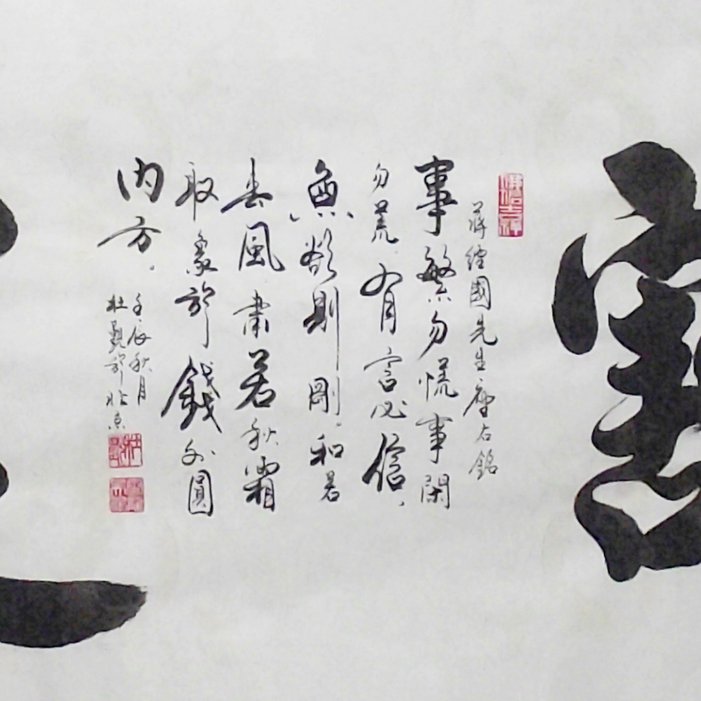 蔣經國先生座右銘
事繁勿慌事閑
勿荒有言必信
無欲則剛和若
春風肅若秋霜
取象於錢外圓
內方
壬辰秋月